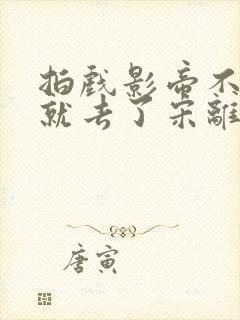 拍戏影帝不
就去了宋離
唐寅